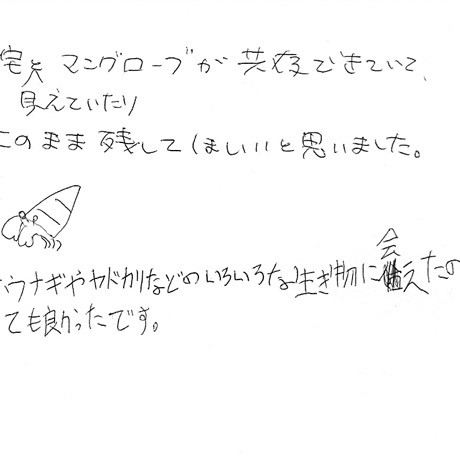 宅とマングローブが共存できていて、
見えていたり
このまま残してほしいと思いました。
ウナギやヤドカリなどのいろいろな生き物に会えたの
ても良かったです。